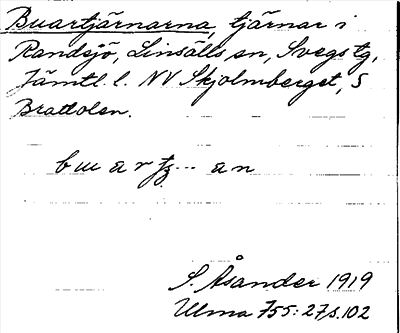 Buartjärnarna, tjärnar i
Randsjö, Linsälls sn, Svegs tg,
Jämtl. l. NV Skjolmberget, S
Brattolen.
S. Åsander 1919
Ulma 755:27 s. 102